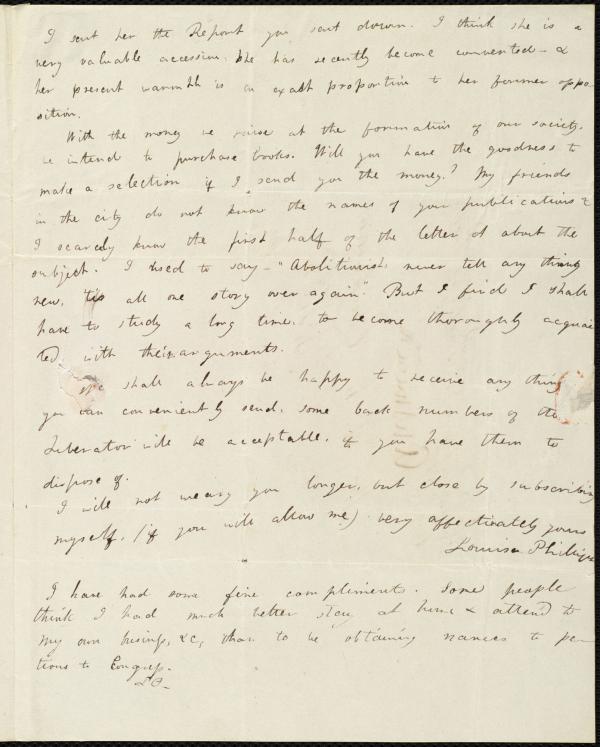 I sent her the Report you sent down. I think she is a
very valuable accession. She has recently become converted – &
her present warmth is in exact proportion to her former oppo-
sition.
With the money we raise at the formation of our society,
we intend to purchase books. Will you have the goodness to
make a selection if I send you the money? My friends
in the city do not know the names of your publications &
I scarcely know the first half of the letter A about the
subject. I used to say – "Abolitionists never tell any thing
new, 'tis all one story over again". But I find I shall
have to study a long time, to become thoroughly acquain
ted with their arguments.
We shall always be happy to receive any thing
you can conveniently send, some back numbers of the
Liberator will be acceptable, if you have them to
dispose of.
I will not weary you longer, but close by subscribing
myself, (if you will allow me) very affectionately yours
Louisa Phillips
I have had some fine compliments. Some people
think I had much better stay at home & attend to
my own businss, &c, than to be obtaining names to pe-
titions to Congress.
L P –